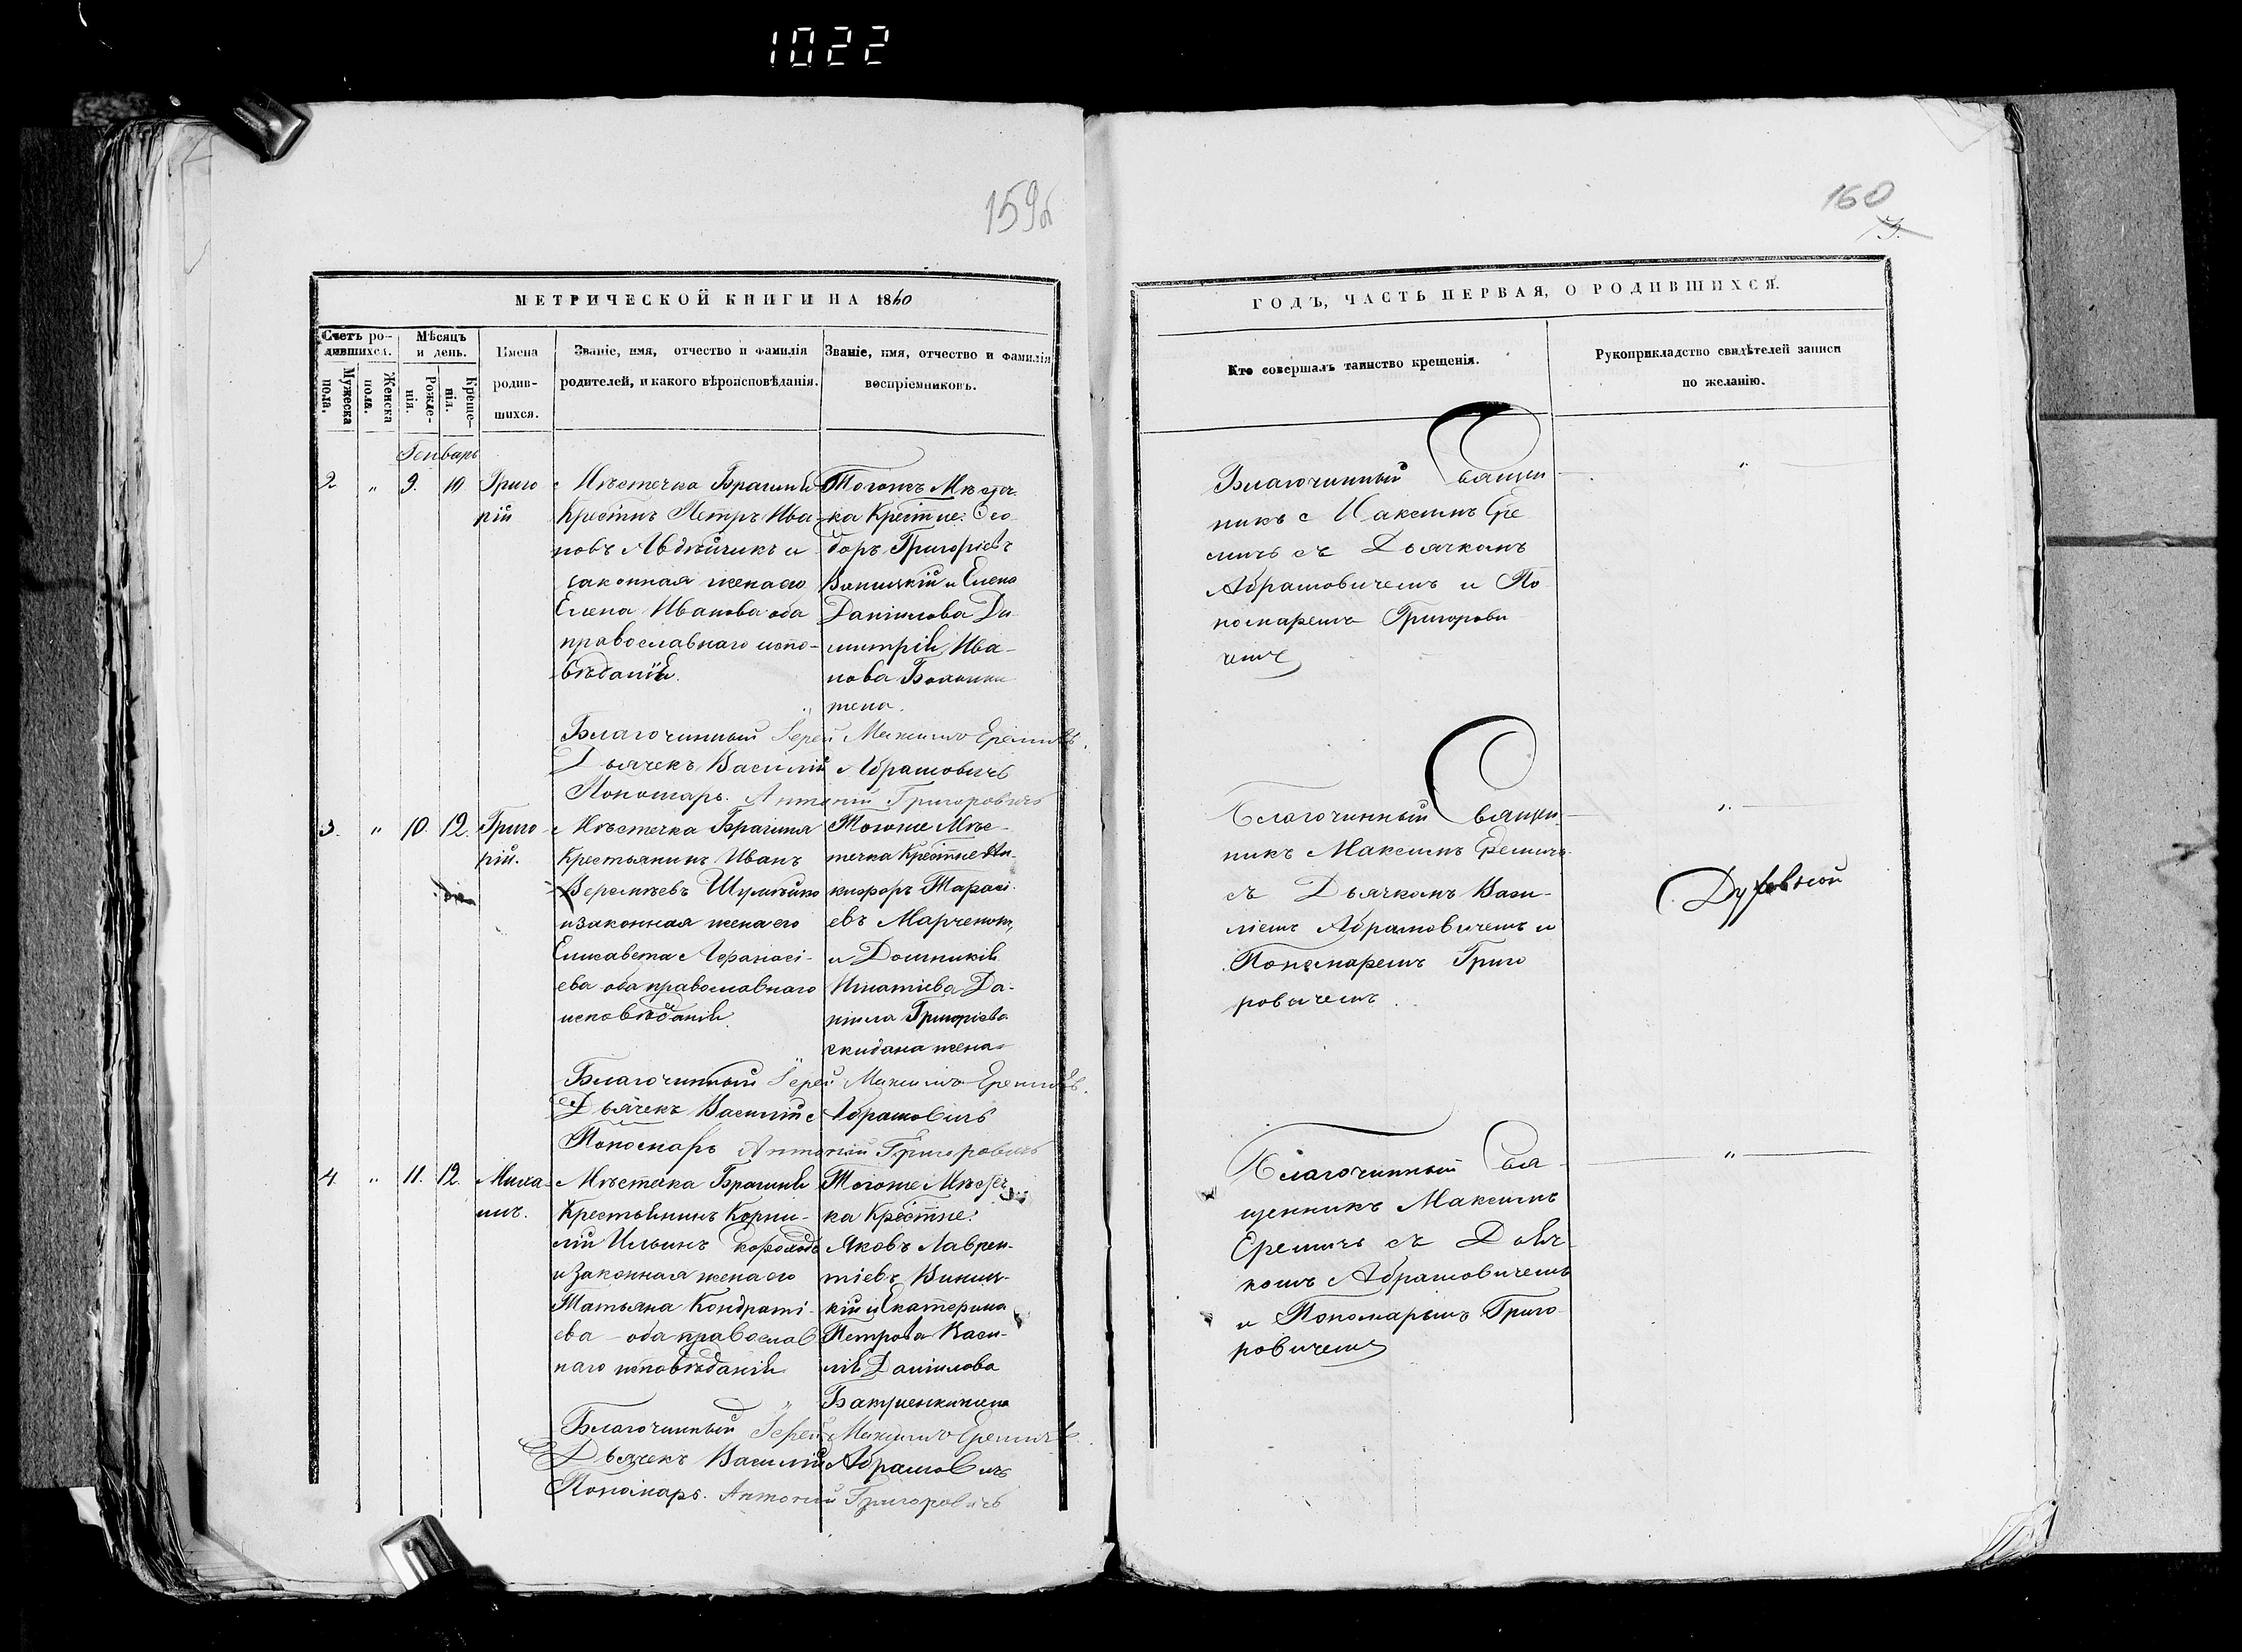 1022
159б
МЕТРИЧЕСКОЙ КНИГИ НА 1860
Счетъ ро-
дившихся.
Мужеска
пола.
Женска
пола.
Мѣсяцъ
и день.
Рожде-
нія.
Креще-
нія.
Имена
родив-
шихся.
Званіе, имя, отчество и фамилія
родителей, и какого вѣроисповѣданія.
Званіе, имя, отчество и фамилія
воспріемниковъ.
Генварь
2 " 9. 10. Григо
рій
Мѣстечка Брагиня
Крестнъ Петръ Ива-
новъ Авдѣйчикъ и
законная жена его
Елена Иванова оба
православнаго испо-
вѣданія.
Тогожъ Мѣстеч
ка Крестне: Ѳео
доръ Григоріевъ
и Елена
Даніилова Ди
митрія Ива-
нова
жена.
Благочинный Іерей Максимъ Еремичъ.
Дьячекъ Василій Абрамовичъ
Пономарь. Антоній Григоровичъ
3. " 10. 12. Григо
рій.
Мѣстечка Брагиня
Крестьянинъ Иванъ
Веремѣевъ Шумѣйко
и законная жена его
Елисавета Афанасі-
ева оба православнаго
исповѣданія.
Тогоже Мѣс-
течка Крестне Ни-
кифоръ Тарасі
евъ Марченокъ,
и Домникія
Игнатіева Да-
ніила Григоріева
скидана жена
Благочинный Іерей Максимъ Еремичъ.
Дьячекъ Василій Абрамовичъ
Пономарь Антоній Григоровичъ
4. " 11. 12. Миха
илъ.
Мѣстечка Брагиня
Крестьянинъ Корни-
лій Ильинъ
и законная жена его
Татьяна Кондраті-
ева – оба православ
наго исповѣданія
Тогоже Мѣстеч
ка Крестне:
Яковъ Лаврен-
тіевъ Виниц-
кій и Екатерина
Петрова Васи-
лія Даніилова
жена
Благочинный Іерей Максимъ Еремичъ
Дьячекъ Василій Абрамовичъ
Пономарь. Антоній Григоровичъ
160
ГОДЪ, ЧАСТЬ ПЕРВАЯ, О РОДИВШИХСЯ.
Кто совершалъ таинство крещенія.
Рукоприкладство свидѣтелей записи
по желанію.
Благочинный Священ
никъ Максимъ Ере
мичъ съ Дьячкомъ
Абрамовичемъ и По
номаремъ Григорови
чемъ
"
Благочинный Священ-
никъ Максимъ Еремичъ
съ Дьячкомъ Васи-
ліемъ Абрамовичемъ и
Пономаремъ Григо
ровичемъ.
"
Духовной
Благочинный Свя-
щенникъ Максимъ
Еремичъ съ Дьяч-
комъ Абрамовичемъ
и Пономаремъ Григо
ровичемъ
"